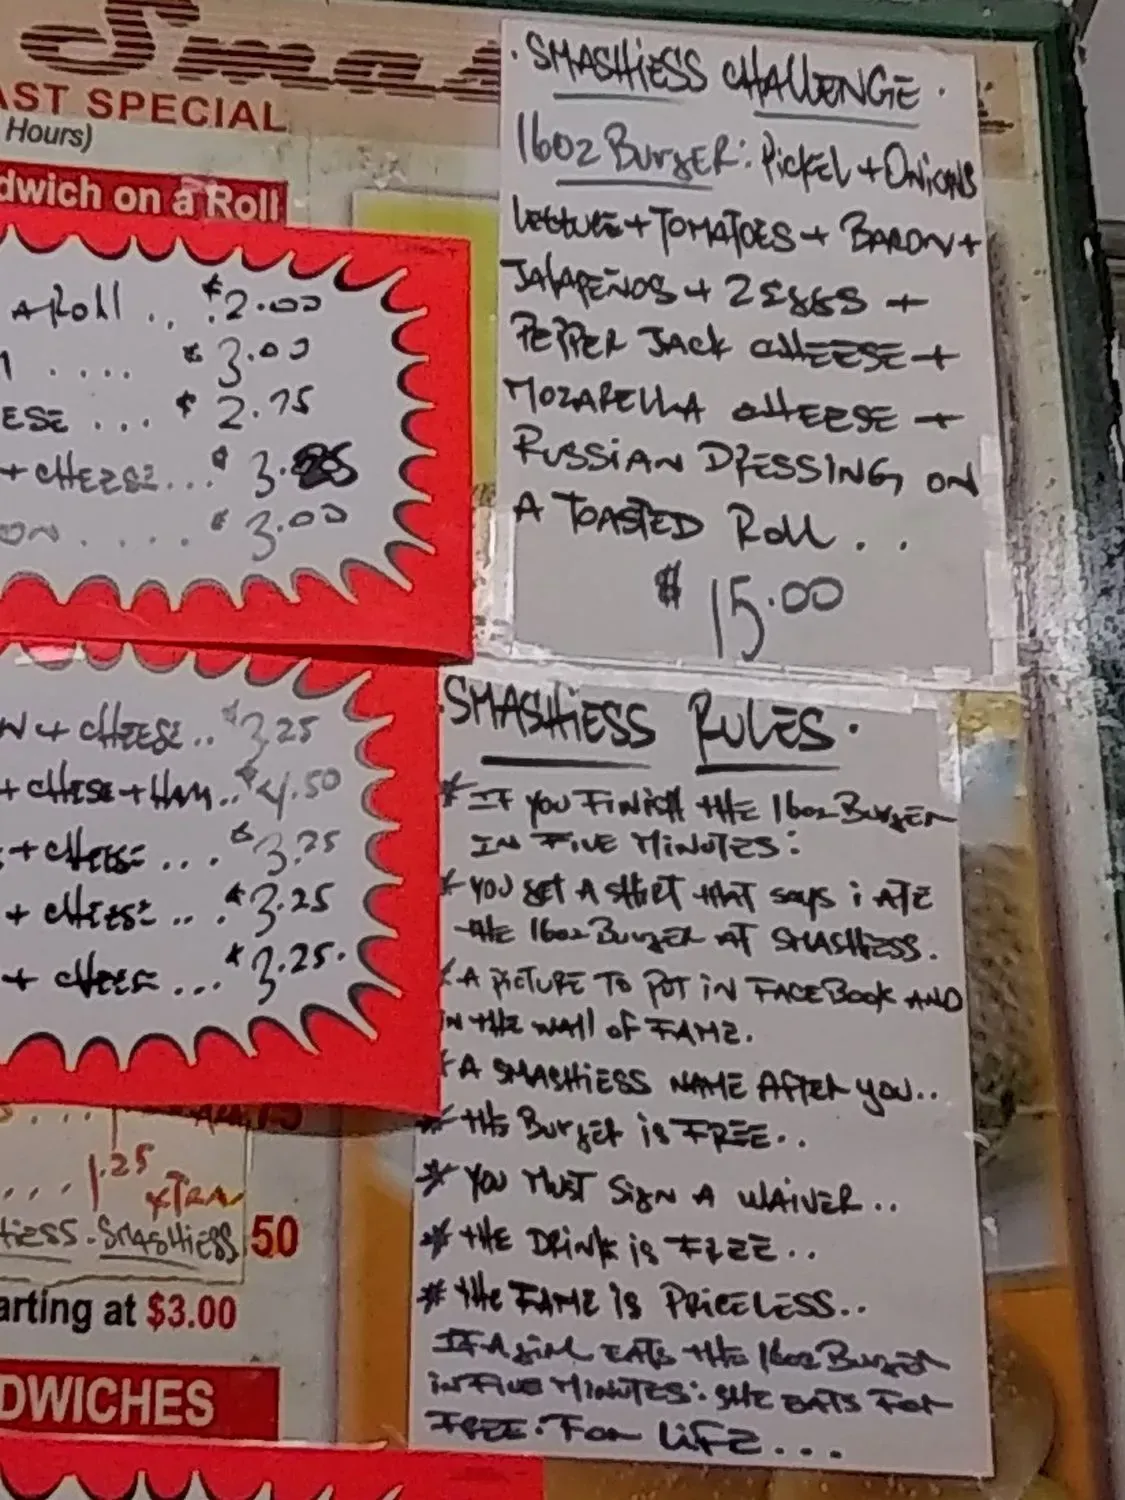 Smas
AST SPECIAL
Hours)
dwich on a Roll
A Roll .. $2.00
.... $3.00
ESE ... $2.75
+ CHEESE... $3.
ON ..... $3.00
+ CHEESE.. $3.25
+ CHEESE + HAM.. $4.50
+ CHEESE ... $3.25
+ CHEESE ... $3.25
+ CHEESE ... $3.25.
.... 1.25
XTRA
HIESS. SMASHIESS 50
arting at $3.00
DWICHES
. SMASHIESS CHALLENGE .
16OZ BURGER: PICKEL + ONIONS
+ TOMATOES + BACON +
JALAPEÑOS + 2 EGGS +
PEPPER JACK CHEESE +
MOZARELLA CHEESE +
RUSSIAN DRESSING, ON
A TOASTED ROLL . .
$15.00
. SMASHIESS RULES .
* IF YOU FINISH THE 16oz BURGER
IN FIVE MINUTES:
* YOU GET A SHIRT THAT SAYS i ATE
THE 16oz BURGER AT SMASHIESS.
* A PICTURE TO PUT IN FACEBOOK AND
IN THE WALL OF FAME.
* A SMASHIESS NAME AFTER YOU..
* THE BURGER IS FREE..
* YOU MUST SIGN A WAIVER..
* THE DRINK IS FREE..
* THE FAME IS PRICELESS..
IF A GIRL EATS THE 16oz BURGER
IN FIVE MINUTES: SHE EATS FOR
FREE. FOR LIFE...